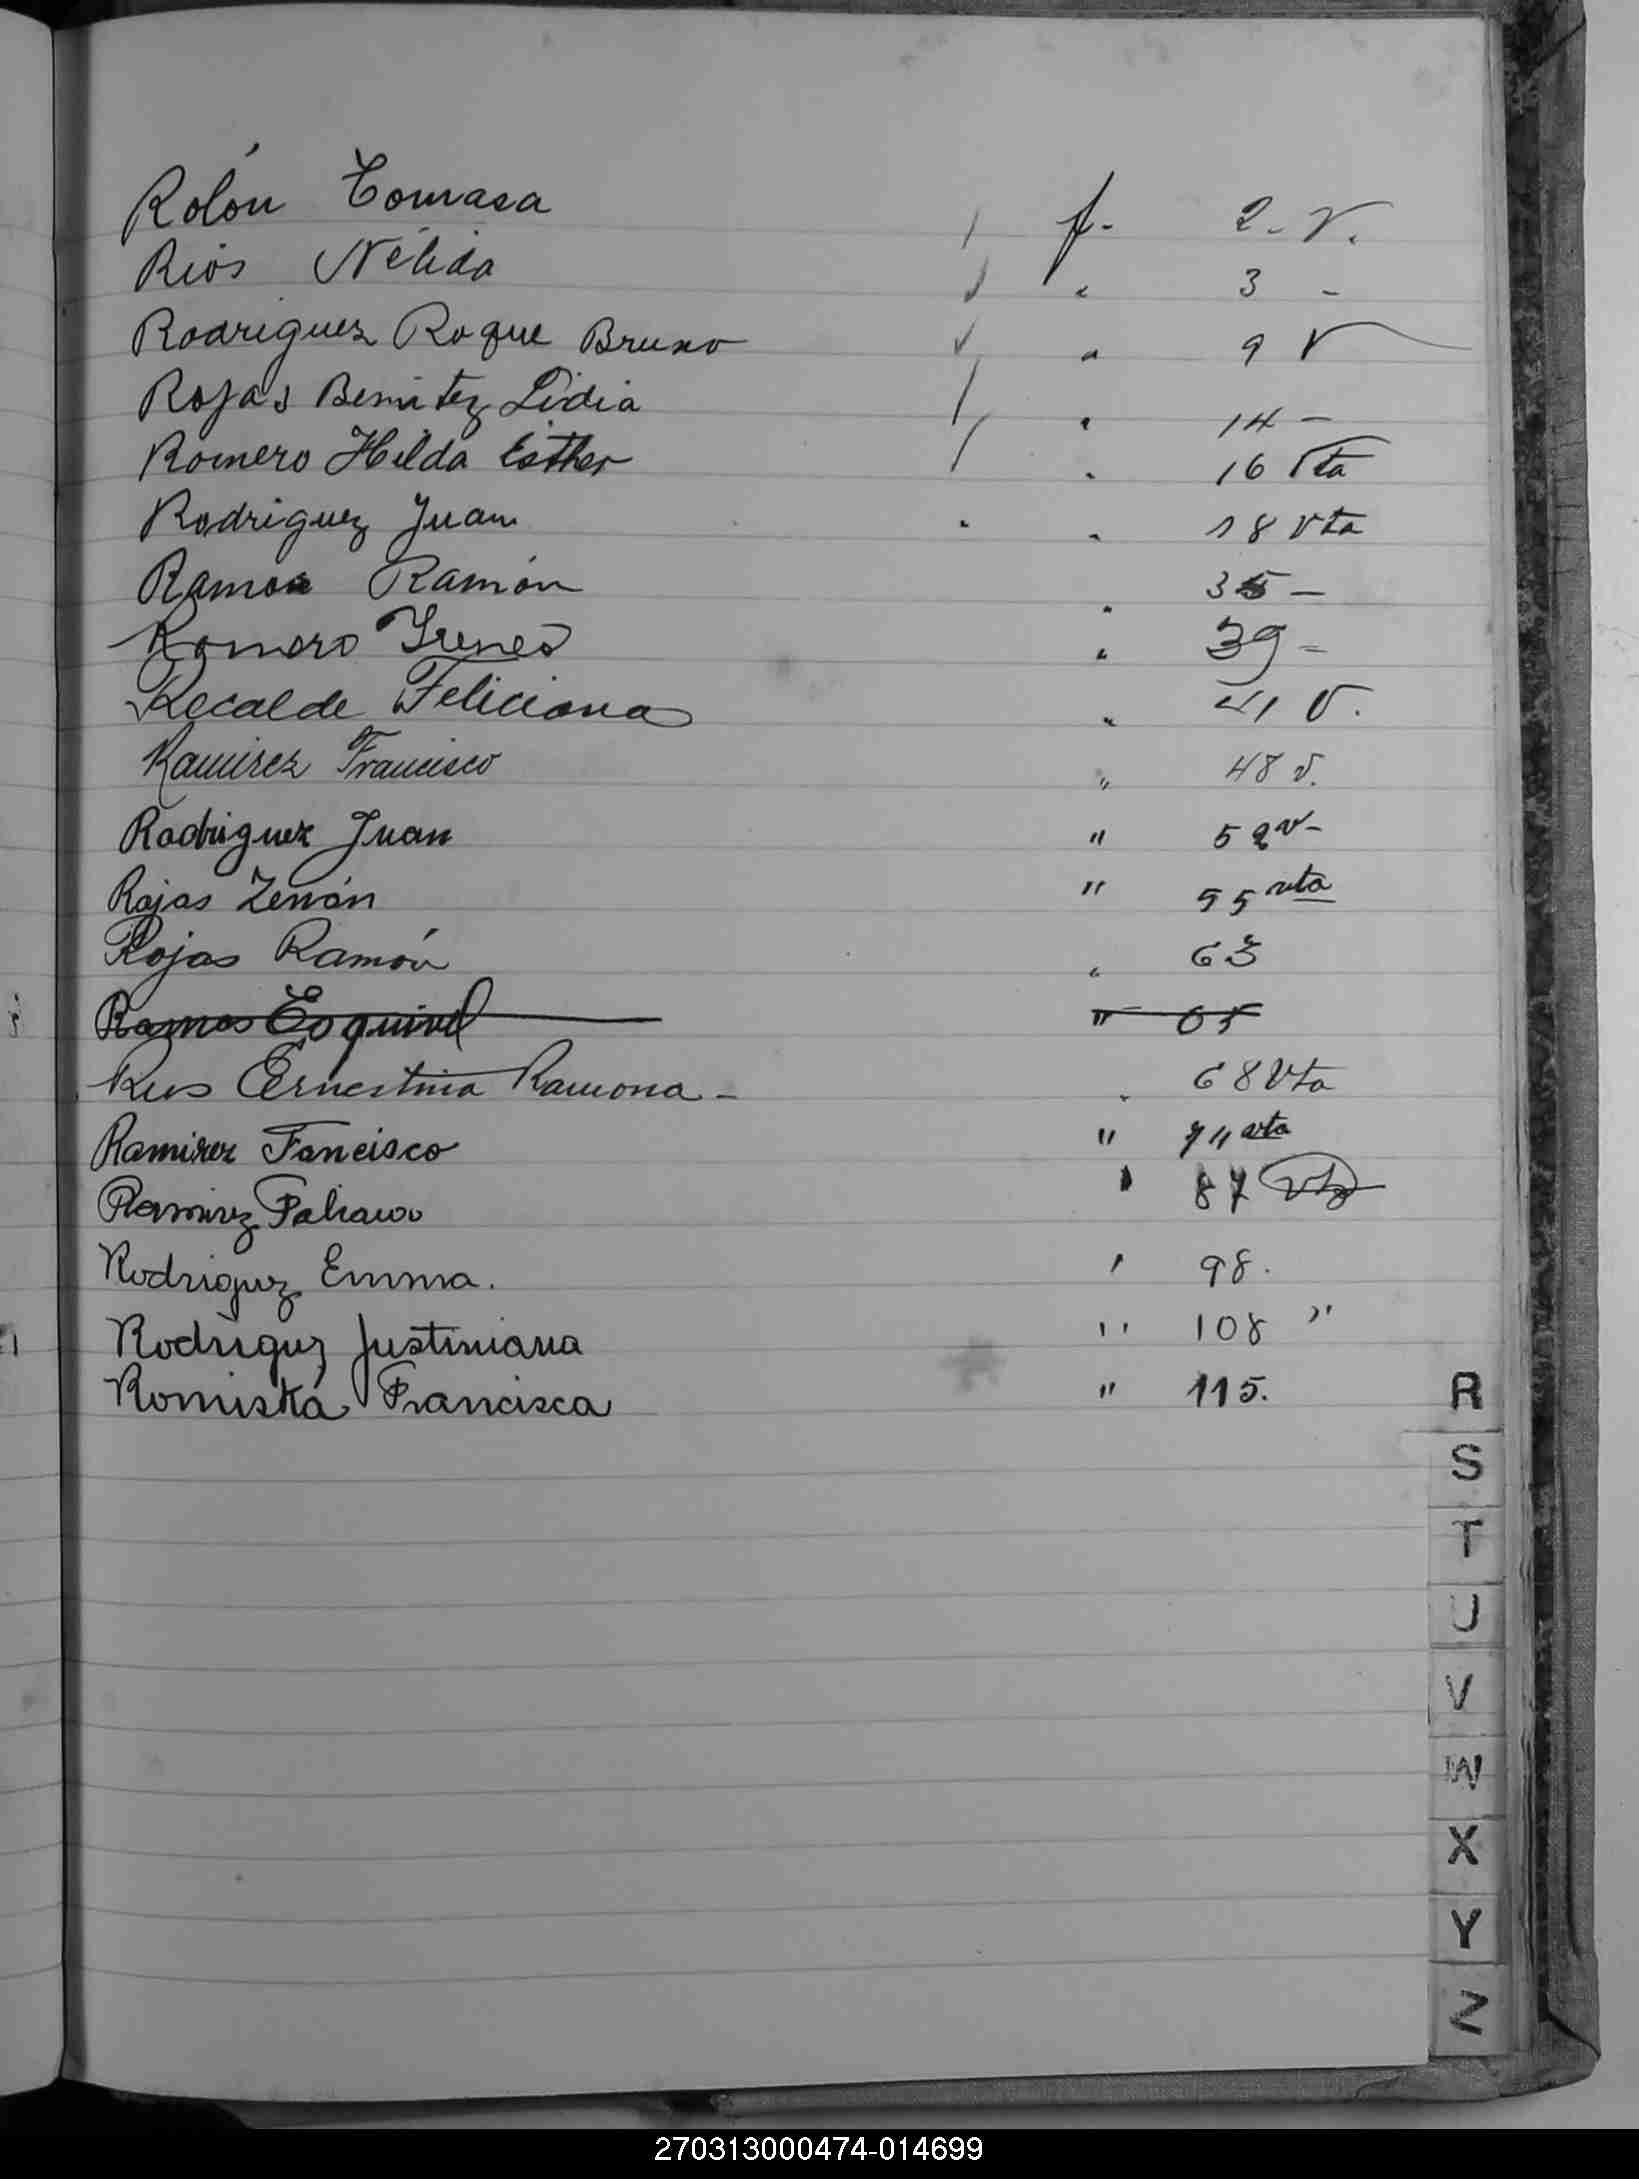 Rolón Tomasa f- 2- V.
Rios Nélida " 3 -
Rodriguez Roque Bruno " 9 V
Rojas Benitez Lidia " 14 -
Romero Hilda Esther " 16 Vta
Rodriguez Juan " 18 Vta
Ramos Ramón " 35 -
Romero Irenes " 39 -
Recalde Feliciana " 41 V.
Ramirez Francisco " 48 v.
Rodriguez Juan " 52 v-
Rojas Zenón " 55 vta
Rojas Ramón " 63
Ramos Esquivel " 65
Ernestina Ramona - " 68 Vta
Ramirez Fancisco " vta
Ramirez " 87 Vta
Rodriguez Emma. " 98.
Rodriguez Justiniana " 108 "
Romiska Francisca " 115.
R
S
T
U
V
W
X
Y
Z
270313000474-014699